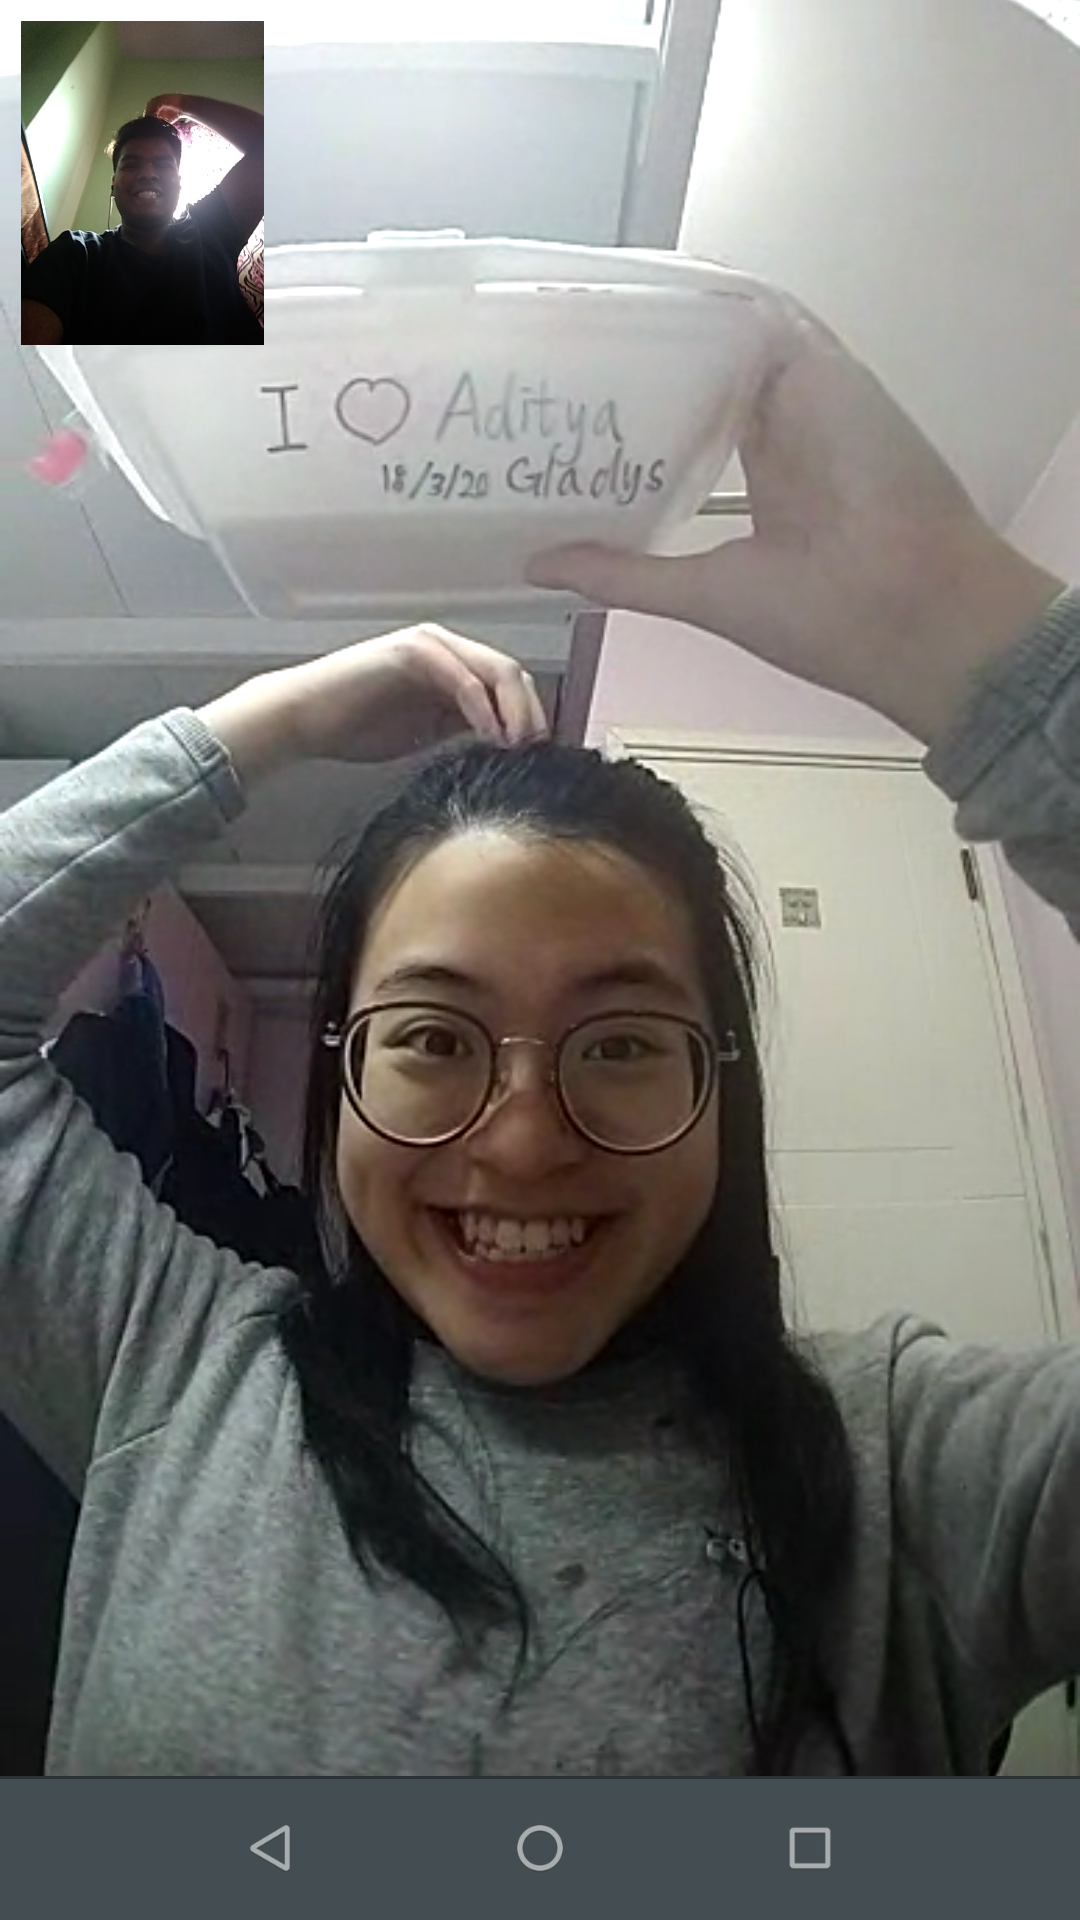 I ♡ Aditya
18/3/20 Gladys